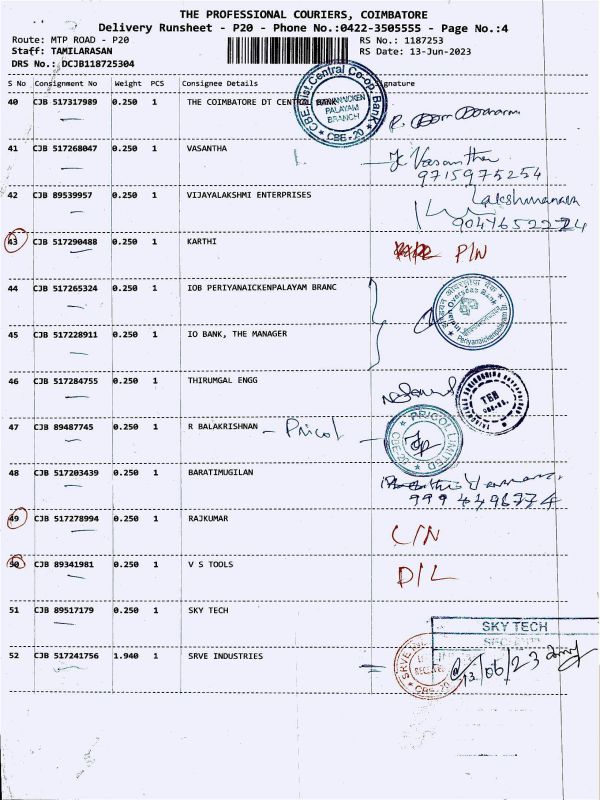 THE PROFESSIONAL COURIERS, COIMBATORE
Delivery Runsheet - P20 - Phone No.:0422-3505555 - Page No.:4
Route: MTP ROAD - P20 RS No.: 1187253
Staff: TAMILARASAN RS Date: 13-Jun-2023
DRS No.: DCJB118725304
S No Consignment No Weight PCS Consignee Details Signature
40 CJB 517317989 0.250 1 THE COIMBATORE DT CENTRAL BANK
CBE.Dist.Central Co-op. Bank
PALAYAM
BRANCH
CBE-20
41 CJB 517268047 0.250 1 VASANTHA Vasantha
9715975254
42 CJB 89539957 0.250 1 VIJAYALAKSHMI ENTERPRISES Lakshmanan
9047652224
43 CJB 517290488 0.250 1 KARTHI P/N
44 CJB 517265324 0.250 1 IOB PERIYANAICKENPALAYAM BRANC
Indian Overseas Bank
Periyanaickenpalayam
45 CJB 517228911 0.250 1 IO BANK, THE MANAGER
46 CJB 517284755 0.250 1 THIRUMGAL ENGG
47 CJB 89487745 0.250 1 R BALAKRISHNAN - Pricol
PRICOL LIMITED
CBE-20
48 CJB 517203439 0.250 1 BARATIMUGILAN
9994496774
49 CJB 517278994 0.250 1 RAJKUMAR L/N
50 CJB 89341981 0.250 1 V S TOOLS D/L
51 CJB 89517179 0.250 1 SKY TECH
SKY TECH
52 CJB 517241756 1.940 1 SRVE INDUSTRIES
SRVE
CBE-20
13/06/23